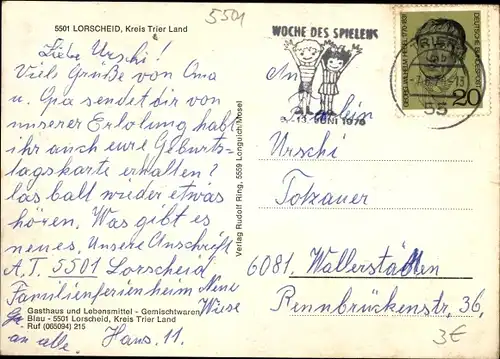 5501
5501 LORSCHEID, Kreis Trier Land
Liebe Urschi!
Viele Grüße von Oma
u. Opa sendet dir von
unserer Erholung habt
ihr auch eure Geburts-
tagskarte erhalten?
las balt wieder etwas
hören. Was gibt es
neues. Unsere Anschrift
A.T. 5501 Lorscheid
Familienferienheim Neue
Wiese
Gasthaus und Lebensmittel - Gemischtwaren
Blau - 5501 Lorscheid, Kreis Trier Land
Ruf (065094) 215
an alle. Haus. 11.
Verlag Rudolf Ring, 5559 Longuich/Mosel
WOCHE DES SPIELENS
13. JUNI 1970
TRIER
55
DEUTSCHE BUNDESPOST
GEORG WILHELM FRIEDRICH HEGEL 1770-1831
20
An
Urschi
Totzauer
6081. Wallerstätten
Rennbrückenstr. 36,
3€